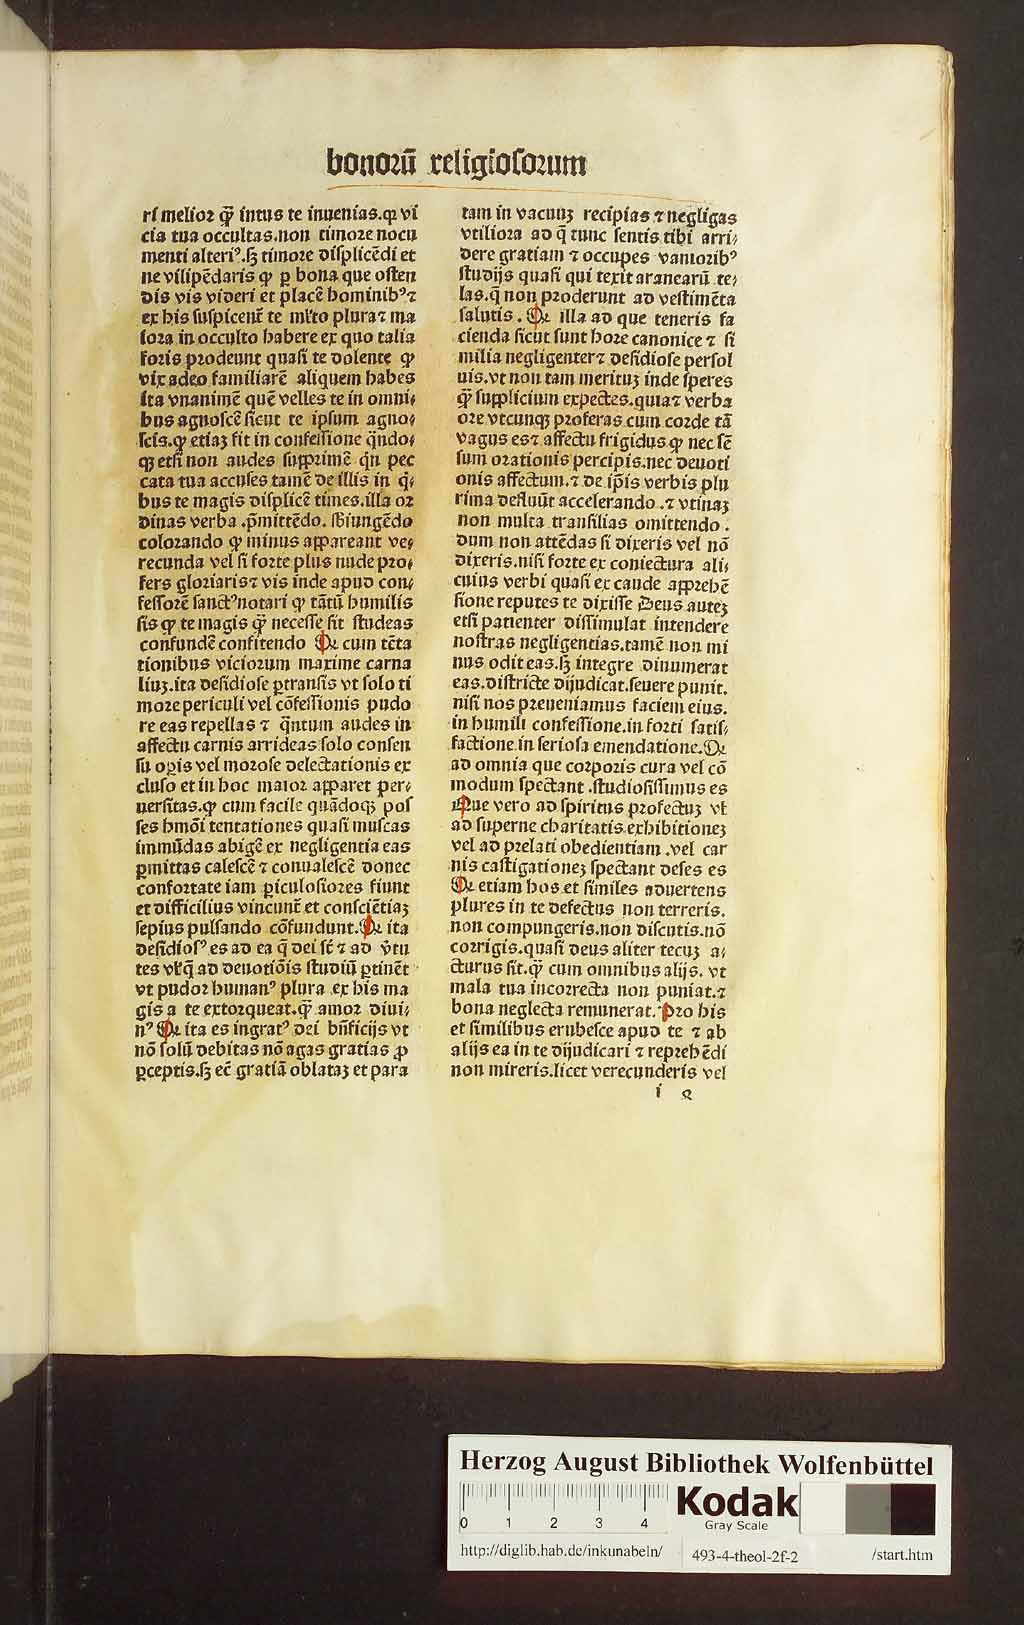 bonorū religiosorum
ri melior q̄ȝ intus te inuenias.qꝛ vi
cia tua occultas.non timore nocu
menti alteriꝰ.sȝ timore displicēdi et
ne vilipēdaris qꝙ ꝑ bona que osten
dis vis videri et placē hominibꝰ ⁊
ex his suspicent̄ te ml̓to plura ⁊ ma
iora in occulto habere ex quo talia
foris prodeunt quasi te dolente ꝙ
vix adeo familiarē aliquem habes
ita vnanimē quē velles te in omni⸗
bus agnoscē sicut te ipsum agno⸗
scis.ꝙ etiaȝ fit in confessione qn̄do⸗
qȝ etsi non audes supprimē qn̄ pec
cata tua accuses tamē de illis in q̄⸗
bus te magis displicē times.illa or
dinas verba .p̄mittēdo. sb̄iungēdo
colorando ꝙ minus appareant ve⸗
recunda vel si forte plus nude pro⸗
fers gloriaris ⁊ vis inde apud con⸗
fessorē sanctꝰ notari ꝙ tātū humilis
sis ꝙ te magis q̄ȝ necesse sit studeas
confundē confitendo Et cum tēta
tionibus viciorum maxime carna
liuȝ.ita desidiose ꝑtransis vt solo ti
more periculi vel cōfessionis pudo
re eas repellas ⁊ qn̄tum audes in
affectu carnis arrideas solo consen
su oꝑis vel morose delectationis ex
cluso et in hoc maior apparet per⸗
uersitas.ꝙ cum facile quādoqȝ pos
ses hmōi tentationes quasi muscas
immūdas abigē ex negligentia eas
ꝑmittas calescē ⁊ conualescē donec
confortate iam ꝑiculosiores fiunt
et difficilius vincunt̄ et consciētiaȝ
sepius pulsando cōfundunt.Et ita
desidiosꝰ es ad ea q̄ dei st̄ ⁊ ad v̄tu
tes vl̓ q̄ ad deuotiōis studiū ꝑtinēt
vt pudor humanꝰ plura ex his ma
gis a te extorqueat.q̄ȝ amor diui⸗
nꝰ Et ita es ingratꝰ dei bn̄ficijs vt
nō solū debitas nō agas gratias ꝓ
ꝑceptis.sȝ ec̄ gratiā oblataȝ et para
tam in vacuuȝ recipias ⁊ negligas
vtiliora ad q̄ tunc sentis tibi arri⸗
dere gratiam ⁊ occupes vanioribꝰ
studijs quasi qui texit aranearū te⸗
las.q̄ non proderunt ad vestimēta
salutis . Et illa ad que teneris fa
cienda sicut sunt hore canonice ⁊ si
milia negligenter ⁊ desidiose persol
uis.vt non tam merituȝ inde speres
q̄ȝ supplicium expectes.quia ⁊ verba
ore vtcunqȝ proferas cum corde tā
vagus es ⁊ affectu frigidus ꝙ nec sē
sum orationis percipis.nec deuoti
onis affectum.⁊ de ip̄is verbis plu
rima defluūt accelerando .⁊ vtinaȝ
non multa transilias omittendo .
dum non attēdas si dixeris vel nō
dixeris.nisi forte ex coniectura ali⸗
cuius verbi quasi ex caude apprehē
sione reputes te dixisse Deus auteȝ
etsi patienter dissimulat intendere
nostras negligentias.tamē non mi
nus odit eas.sȝ integre dinumerat
eas.districte dijudicat.seuere punit.
nisi nos preueniamus faciem eius.
in humili confessione.in forti satis⸗
factione.in seriosa emendatione.Et
ad omnia que corporis cura vel cō
modum spectant .studiosissimus es
Que vero ad spiritus profectuȝ vt̄
ad superne charitatis exhibitioneȝ
vel ad prelati obedientiam .vel car
nis castigationeȝ spectant deses es
Et etiam hos et similes aduertens
plures in te defectus non terreris.
non compungeris.non discutis.nō
corrigis.quasi deus aliter tecuȝ a⸗
cturus sit.q̄ȝ cum omnibus alijs. vt
mala tua incorrecta non puniat.⁊
bona neglecta remunerat. Pro his
et similibus erubesce apud te ⁊ ab
alijs ea in te dijudicari ⁊ reprehēdi
non mireris.licet verecunderis vel
i
Herzog August Bibliothek Wolfenbüttel
0 1 2 3 4
Kodak
Gray Scale
http://diglib.hab.de/inkunabeln/
493-4-theol-2f-2
/start.htm